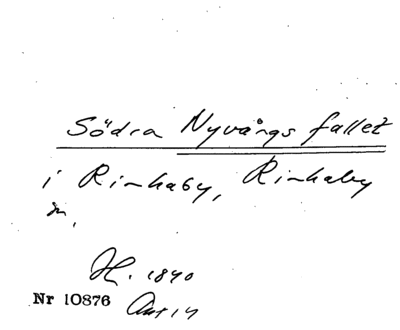 Södra Nyvångs fallet
i Rinkaby, Rinkaby
m.
H. 1840
Nr 10876